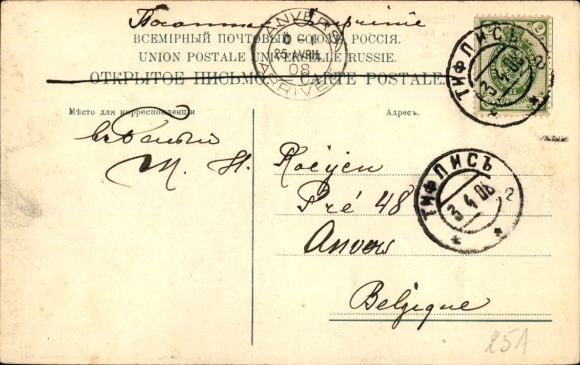 Imprimé
ANVERS
6-1
25 AVRIL
08
ARRIVEE
ВСЕМІРНЫЙ ПОЧТОВЫЙ СОЮЗЪ. РОССІЯ.
UNION POSTALE UNIVERSELLE RUSSIE.
ОТКРЫТОЕ ПИСЬМО. — CARTE POSTALE
Мѣсто для корреспонденціи
Адресъ.
ТИФЛИСЪ
23 4 08
2
M. H. Roeyen
Pré 48
Anvers
Belgique
ТИФЛИСЪ
23 4 08
2
25A